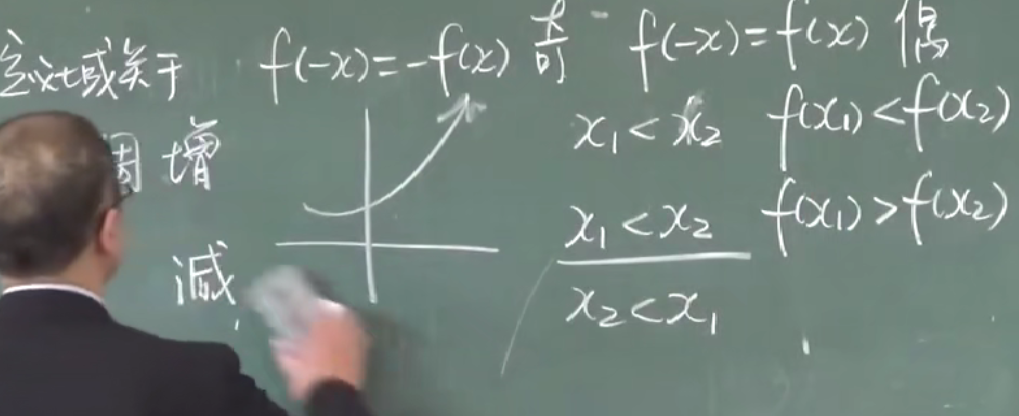 定义域关于 f(-x)=-f(x) 奇 f(-x)=f(x) 偶
调 增 x₁<x₂ f(x₁)<f(x₂)
减 x₁<x₂ f(x₁)>f(x₂)
x₂<x₁